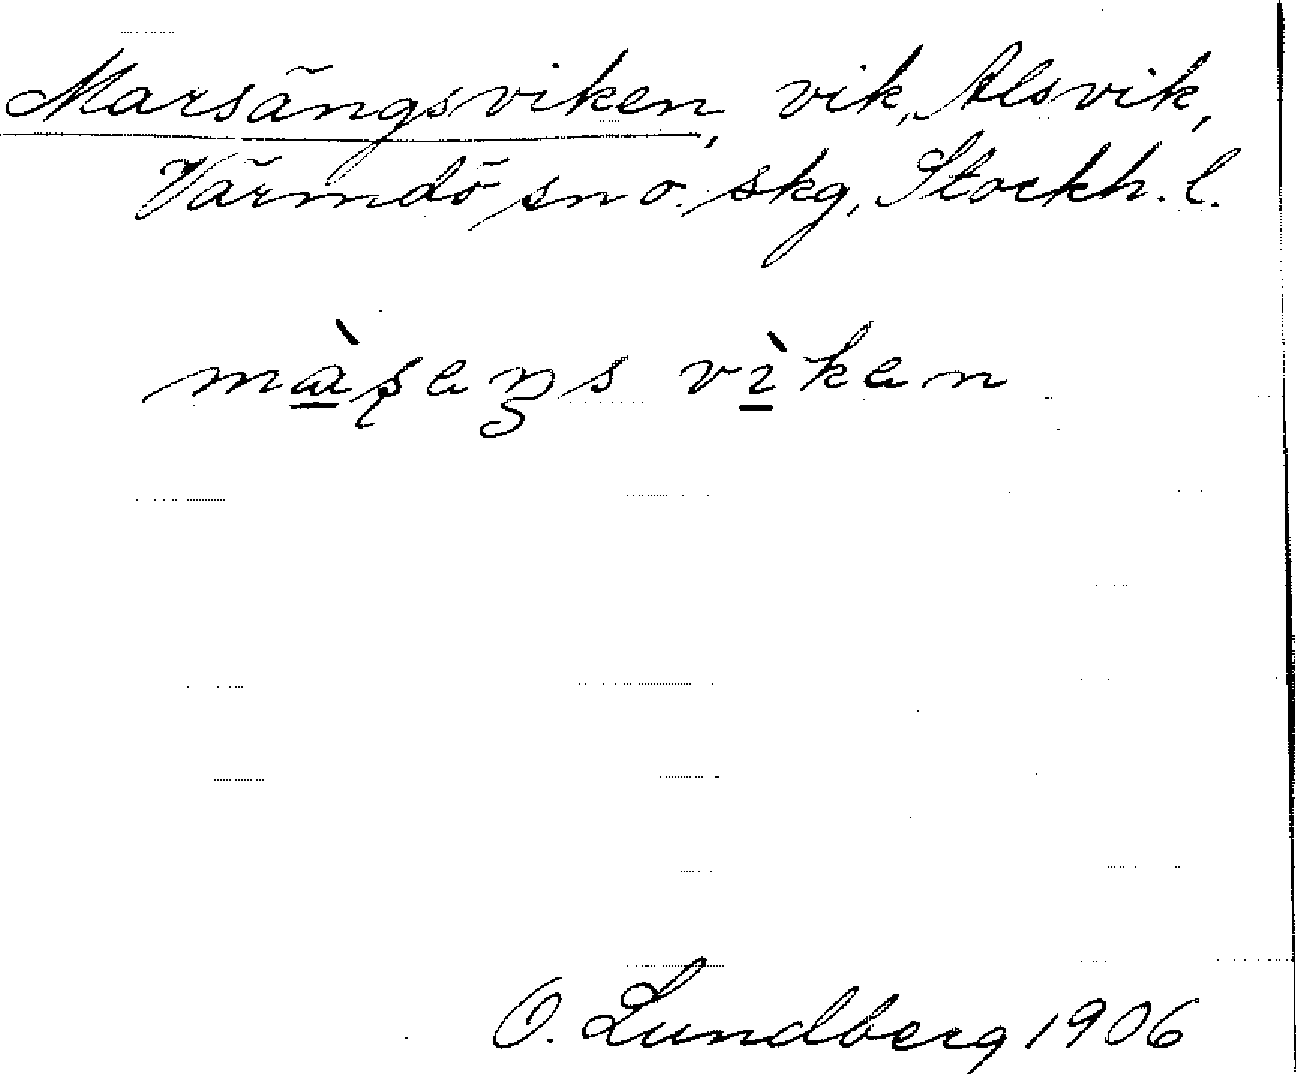 Marsängsviken, vik, Alsvik,
Värmdö sn o. skg, Stockh. l.
màşeŋs vìken
O. Lundberg 1906